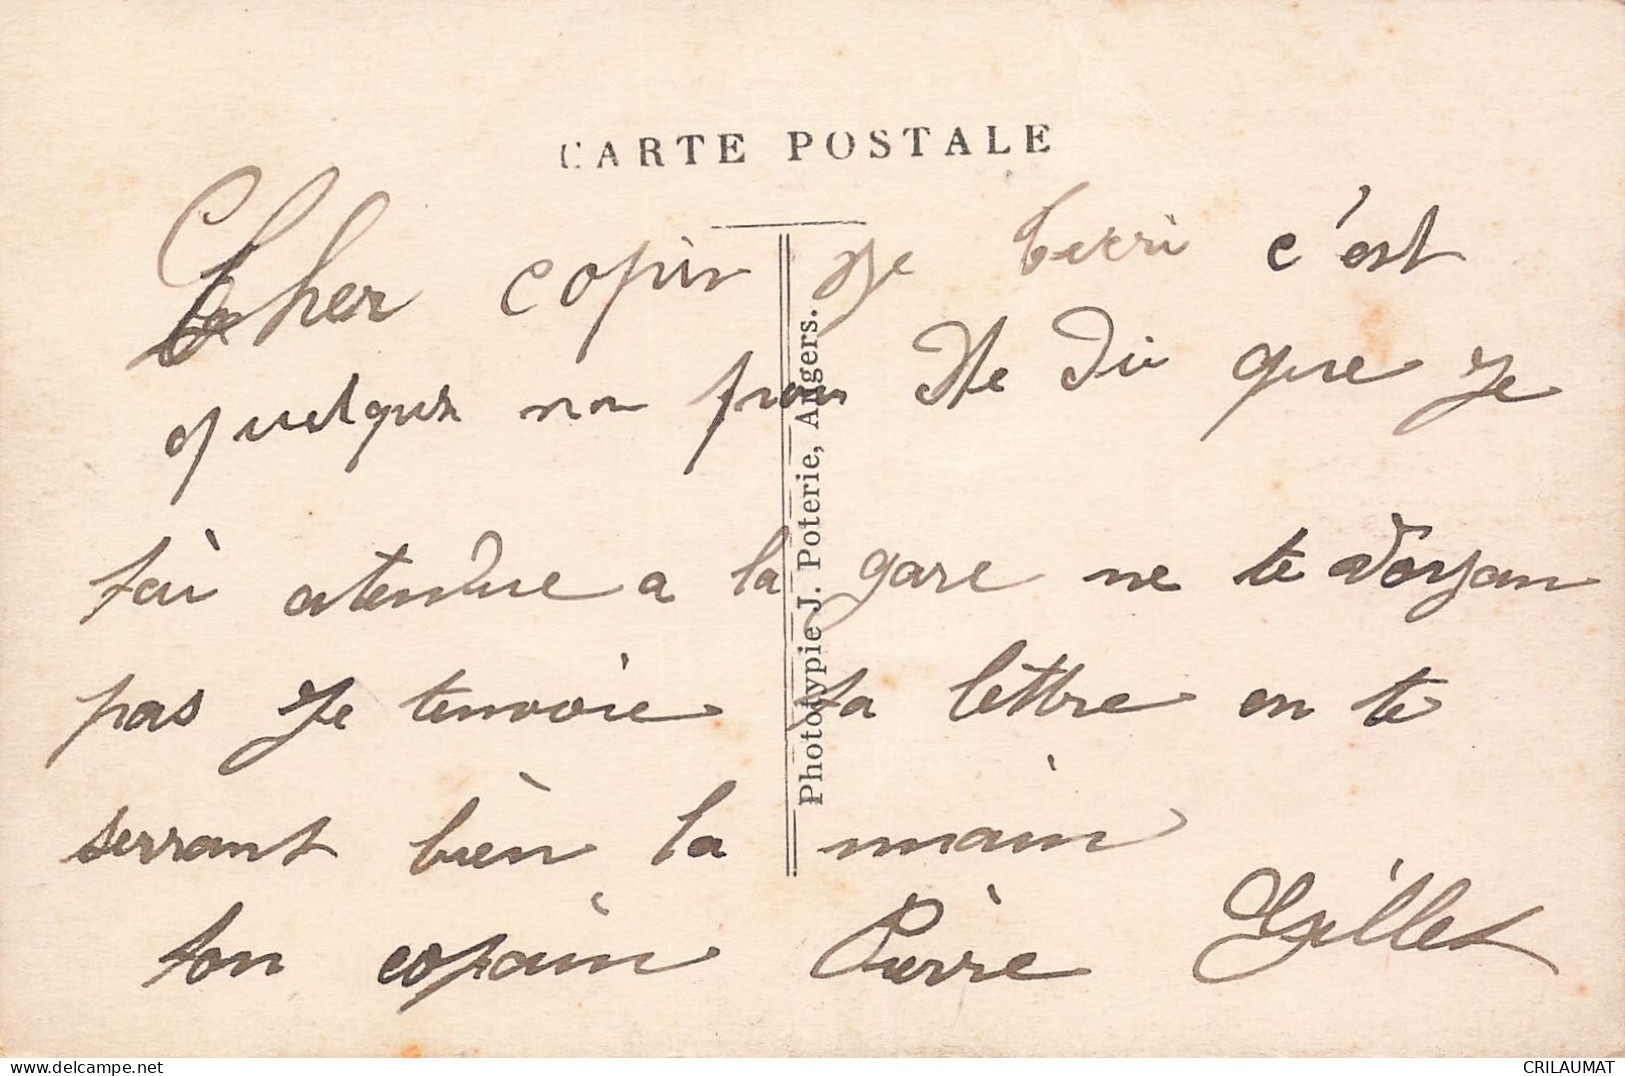 CARTE POSTALE
Cher copin Je c'est
quelque mon Je Dit que Je
tai atendue a la gare ne te voyan
pas Je tenvoie ta lettre en te
serrant bien la main
ton copain Pierre Gillet
Phototypie J. Poterie, Angers.
CRILAUMAT